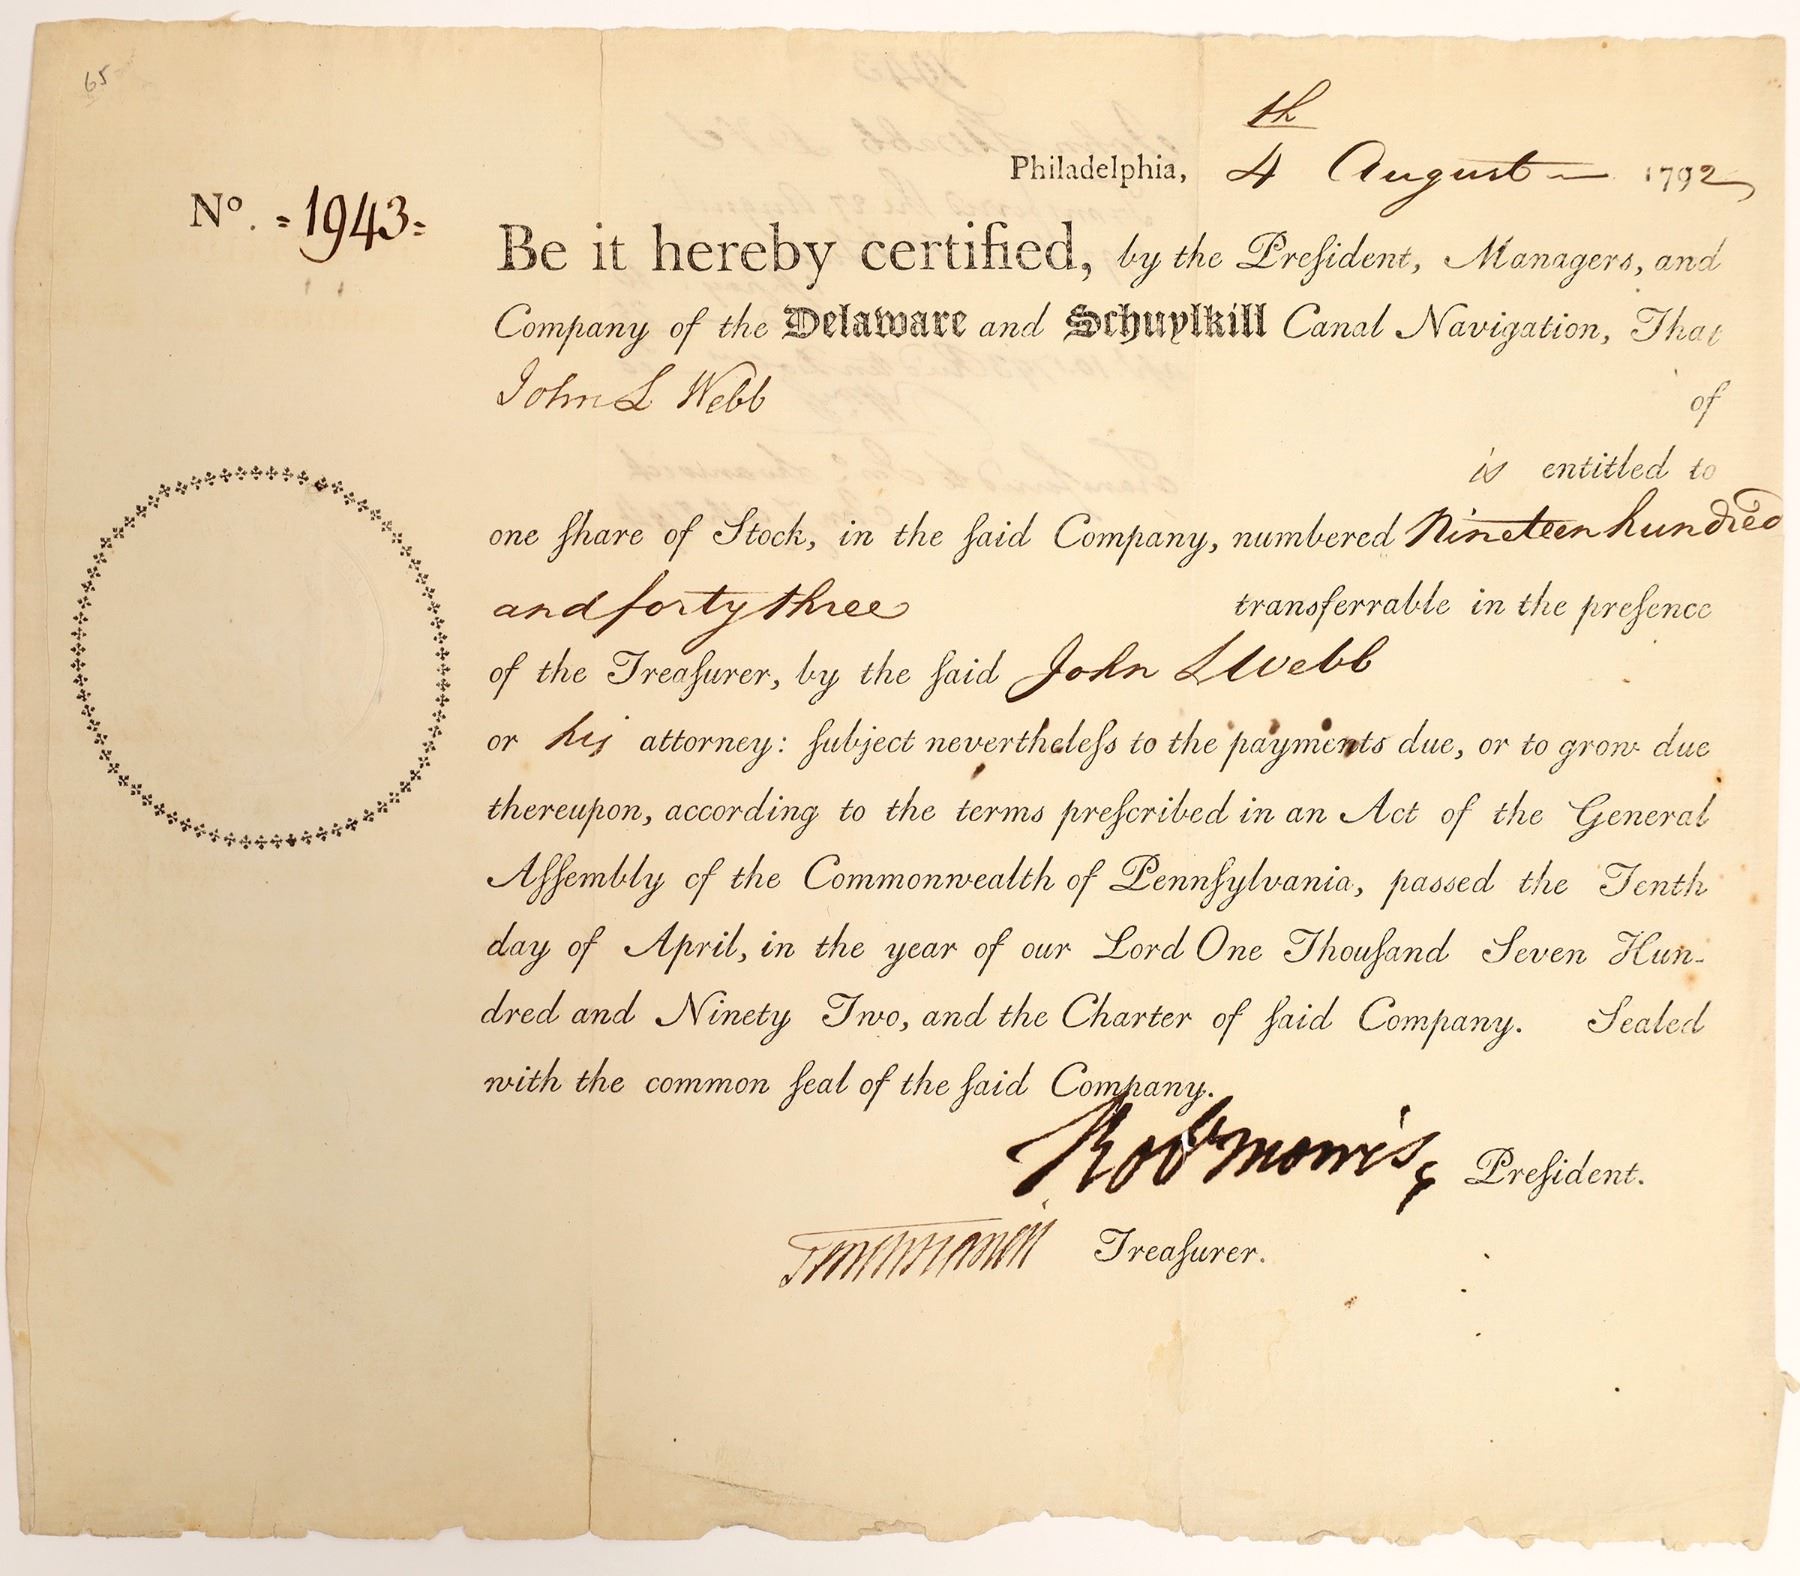 65
th
Philadelphia, 4 August 1792
No. =1943=
Be it hereby certified, by the Preſident, Managers, and
Company of the Delaware and Schuylkill Canal Navigation, That
John L Webb of
is entitled to
one ſhare of Stock, in the ſaid Company, numbered Nineteen hundred
and forty three transferrable in the preſence
of the Treaſurer, by the ſaid John L Webb
or his attorney: ſubject nevertheleſs to the payments due, or to grow due
thereupon, according to the terms preſcribed in an Act of the General
Aſſembly of the Commonwealth of Pennſylvania, passed the Tenth
day of April, in the year of our Lord One Thouſand Seven Hun-
dred and Ninety Two, and the Charter of ſaid Company. Sealed
with the common ſeal of the ſaid Company.
Robt Morris Preſident.
Treaſurer.